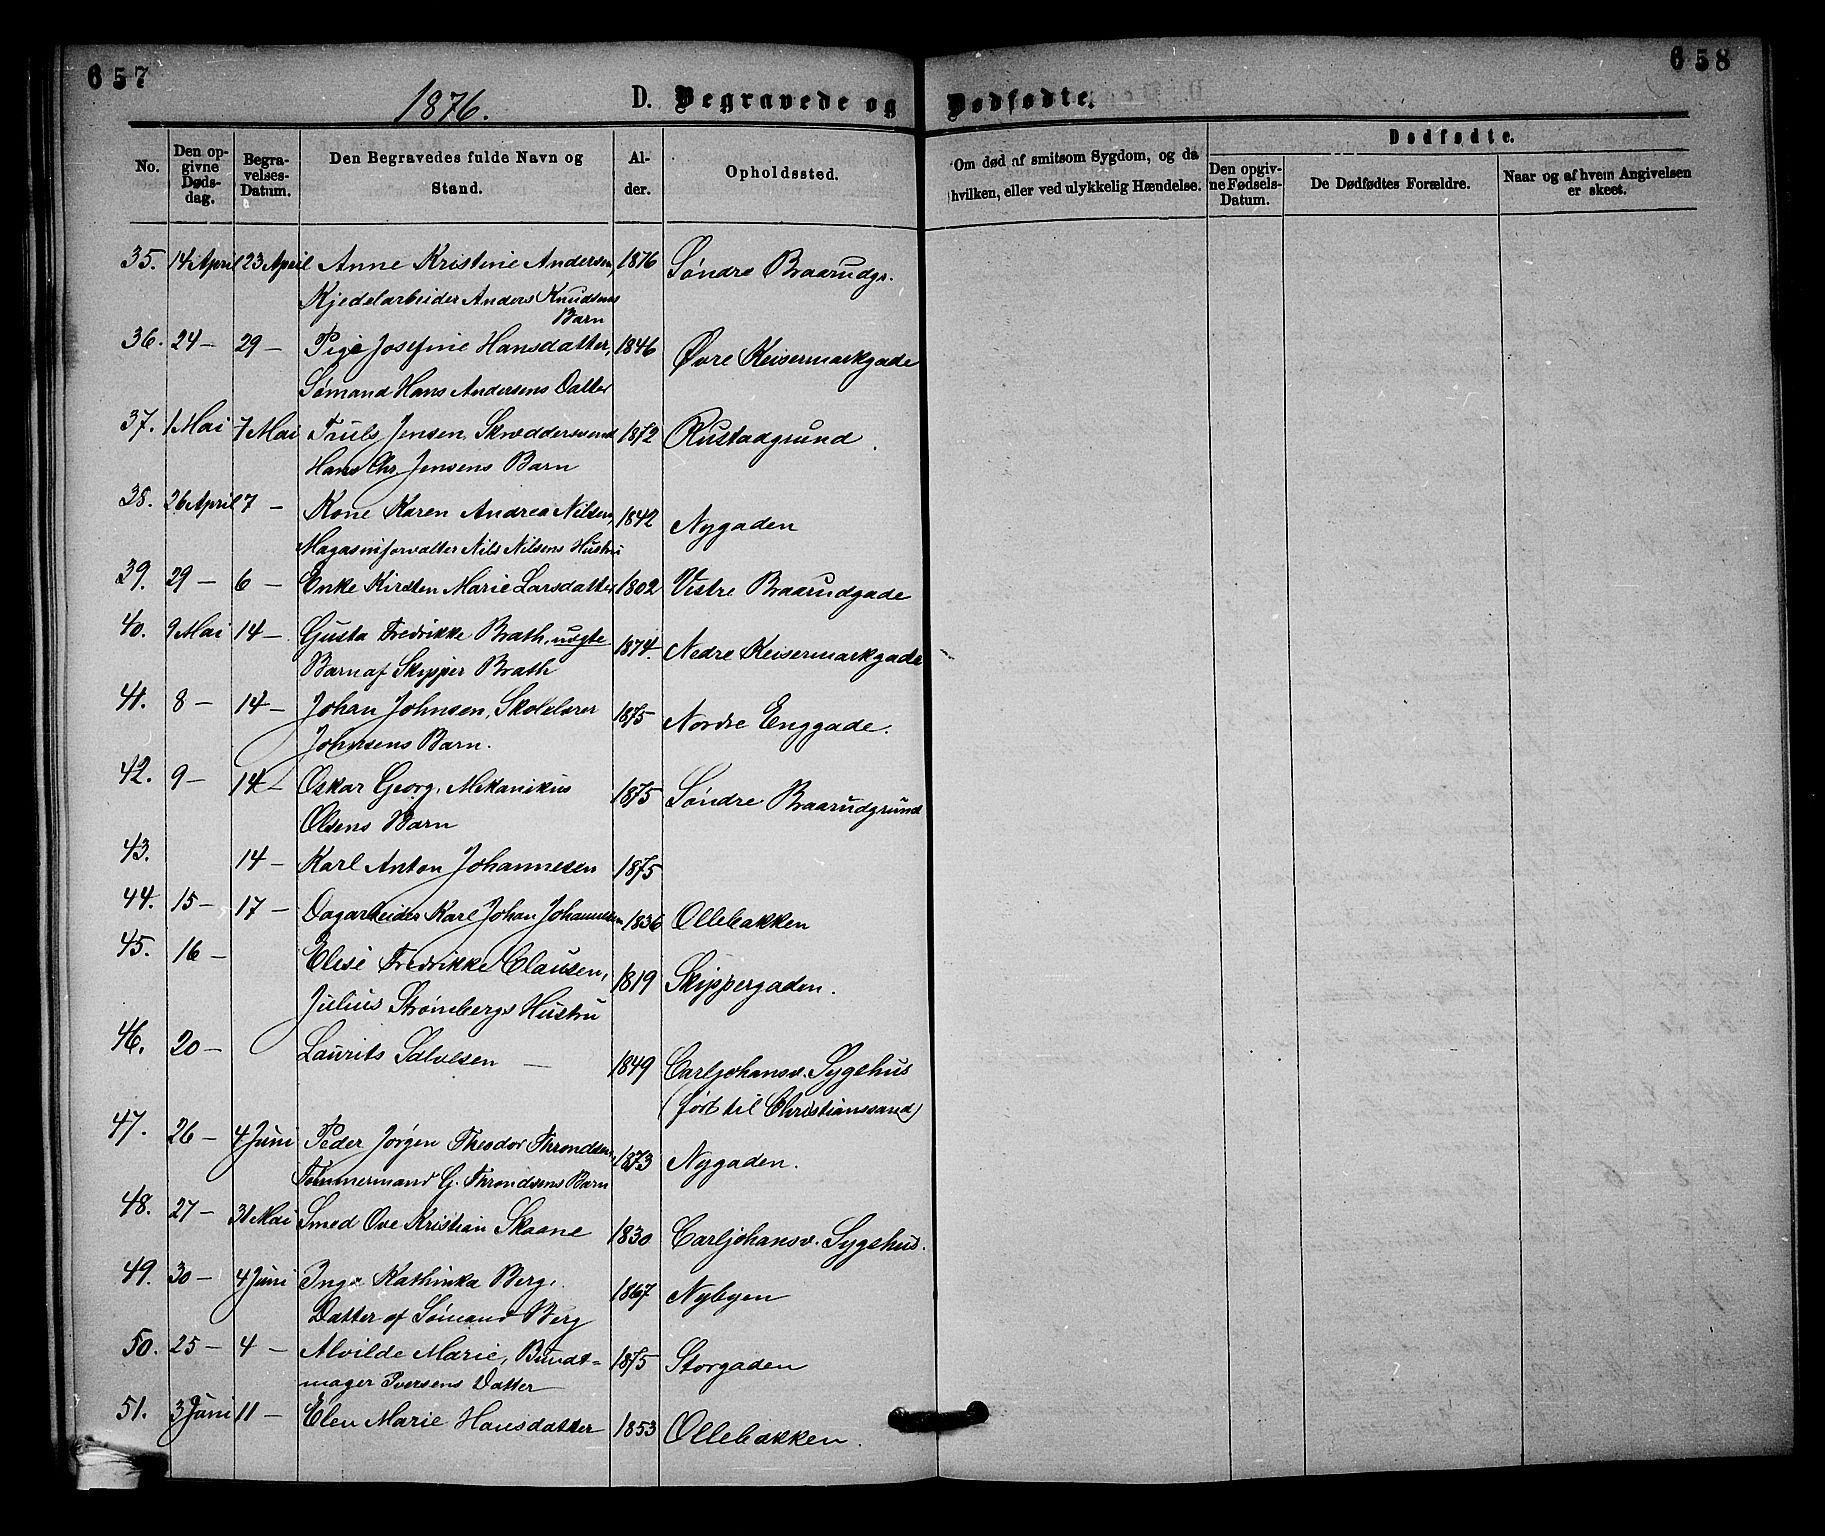 657
658
1876. D. Begravede og Dødfødte.
No.
Den opgivne Dødsdag.
Begravelses-Datum.
Den Begravedes fulde Navn og Stand.
Alder.
Opholdssted.
Om død af smitsom Sygdom, og da hvilken, eller ved ulykkelig Hændelse.
Dødfødte.
Den opgivne Fødsels-Datum.
De Dødfødtes Forældre.
Naar og af hvem Angivelsen er skeet.
35. 14 April 23 April Anne Kristine Andersen, 1876 Søndre Baarudgr.
Kjedelarbeider Anders Knudsens
Barn
36. 24 – 29 – Pige Josefine Hansdatter, 1846 Øvre Keisermarkgade
Sømand Hans Andersens Datter
37. 1 Mai 7 Mai Truls Jensen, Skræddersvend 1872 Rustadgrund.
Hans Chr. Jensens Barn
38. 26 April 7 – Kone Karen Andrea Nilsen, 1842 Nygaden
Magasinforvalter Nils Nilsens Hustru
39. 29 – 6 – Enke Kirsten Marie Larsdatter 1802 Vestre Baarudgade
40. 9 Mai 14 – Gusta Fredrikke Brath, uægte 1874. Nedre Keisermarkgade
Barn af Skipper Brath
41. 8 – 14 – Johan Johnsen, Skolelærer 1875 Nordre Enggade.
Johnsens Barn.
42. 9 – 14 – Oskar Georg, Mekanikus 1875 Søndre Baarudgrund
Olsens Barn
43. 14 – Karl Anton Johannesen 1875
44. 15 – 17 – Dagarbeider Karl Johan Johannesen 1836 Ollebakken
45. 16 – Elise Fredrikke Clausen, 1819 Skippergaden.
Julius Strømbergs Hustru
46. 20 – Laurits Salvesen – 1849 Carljohansv. Sygehus
(ført til Christianssand)
47. 26 – 4 Juni Peder Jørgen Theodor Throndsen, 1873 Nygaden.
Tømmermand G. Throndsens Barn
48. 27 – 31 Mai Smed Ove Kristian Skaane 1830 Carljohansv. Sygehus.
49. 30 – 4 Juni Inga Kathinka Berg, 1867 Nybyen
Datter af Sømand Berg
50. 25 – 4 – Alvilde Marie, Bundt- 1875 Storgaden
mager Iversens Datter
51. 3 Juni 11 – Elen Marie Hansdatter 1853 Ollebakken.